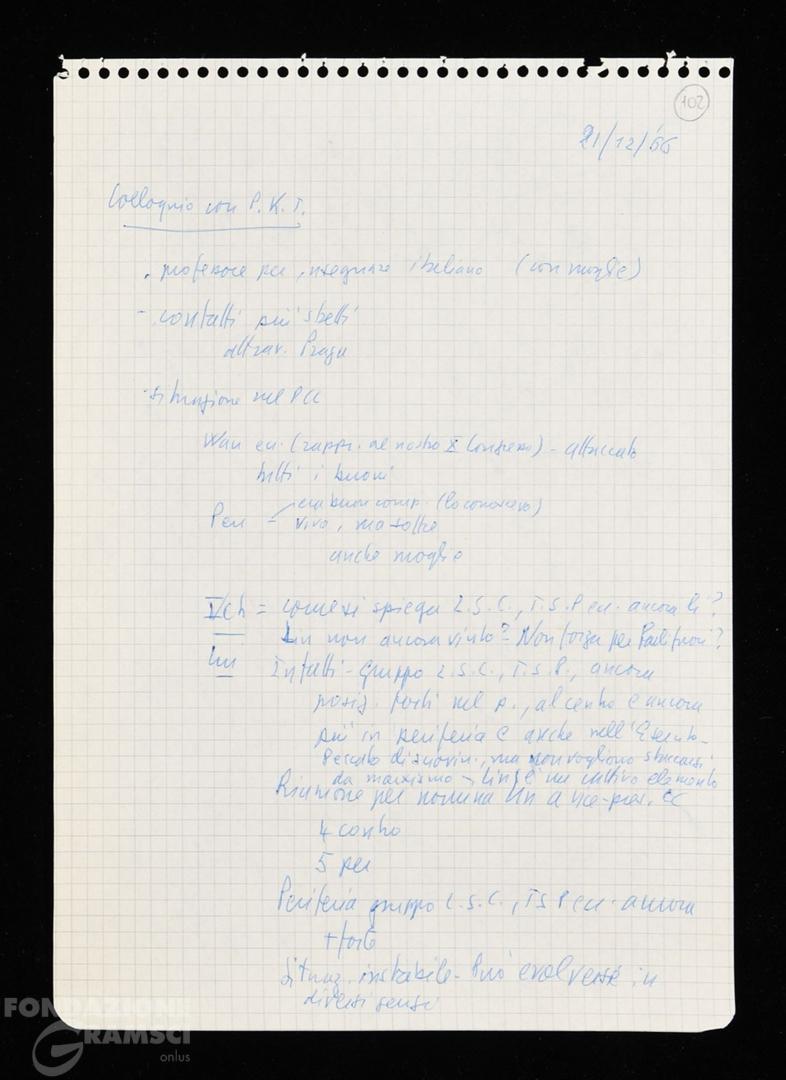 102
21/12/66
Colloquio con P.K.T.
- professore per insegnare italiano (con moglie)
- contatti più stretti
attrav. Praga
- situazione nel PCC
Wan ecc. (rappr. al nostro X Congresso) - attaccato
tutti i buoni
era buon comp. (lo conoscevo)
Pen - vivo, ma soffre
anche moglie
Ych = come si spiega L.S.C., T.S.P ecc. ancora lì?
Lin non ancora vinto? Non forza per farli fuori?
Lui Infatti - gruppo L.S.C., T.S.P., ancora
posiz. forti nel p., al centro e ancora
più in periferia e anche nell'Esercito -
Peccato di sciovin., ma non vogliono staccarsi
da marxismo - Lin è un cattivo elemento
Riunione per nomina Lin a vice-pres. CC
4 contro
5 per
Periferia gruppo L.S.C., TSP ecc. ancora
+ forte
Situaz. instabile - Può evolversi in
diversi sensi
FONDAZIONE
GRAMSCI
onlus